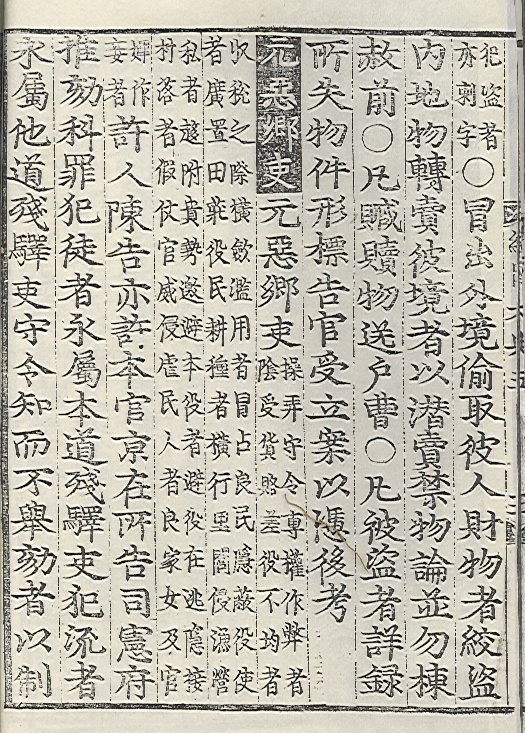 犯盜者
亦刺字
○冒出外境偷取彼人財物者絞盜
內地物轉賣彼境者以潛賣禁物論並勿揀
赦前○凡贓贖物送戶曹○凡被盜者詳錄
所失物件形標告官受立案以憑後考
元惡鄉吏元惡鄉吏
操弄守令專權作弊者
陰受貨賂差役不均者
收稅之際橫斂濫用者冒占良民隱蔽役使
者廣置田莊役民耕種者橫行里閭侵漁營
私者趨附貴勢邀避本役者避役在逃隱接
村落者假仗官威侵虐民人者良家女及官
婢作
妾者
許人陳告亦許本官京在所告司憲府
推劾科罪犯徒者永屬本道殘驛吏犯流者
永屬他道殘驛吏守令知而不舉劾者以制